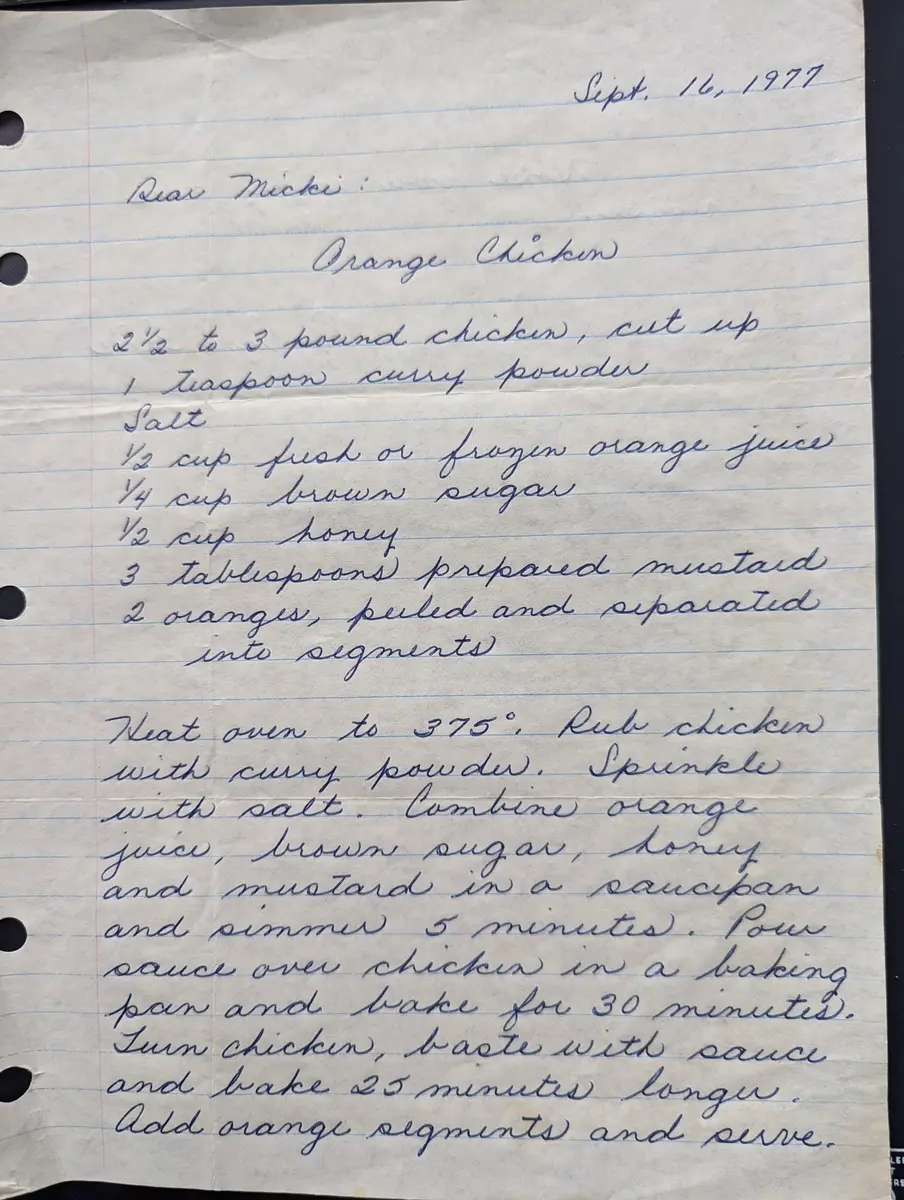 Sept. 16, 1977
Dear Micki:
Orange Chicken
2 1/2 to 3 pound chicken, cut up
1 teaspoon curry powder
Salt
1/2 cup fresh or frozen orange juice
1/4 cup brown sugar
1/2 cup honey
3 tablespoons prepared mustard
2 oranges, peeled and separated
into segments
Heat oven to 375°. Rub chicken
with curry powder. Sprinkle
with salt. Combine orange
juice, brown sugar, honey
and mustard in a saucepan
and simmer 5 minutes. Pour
sauce over chicken in a baking
pan and bake for 30 minutes.
Turn chicken, baste with sauce
and bake 25 minutes longer.
Add orange segments and serve.